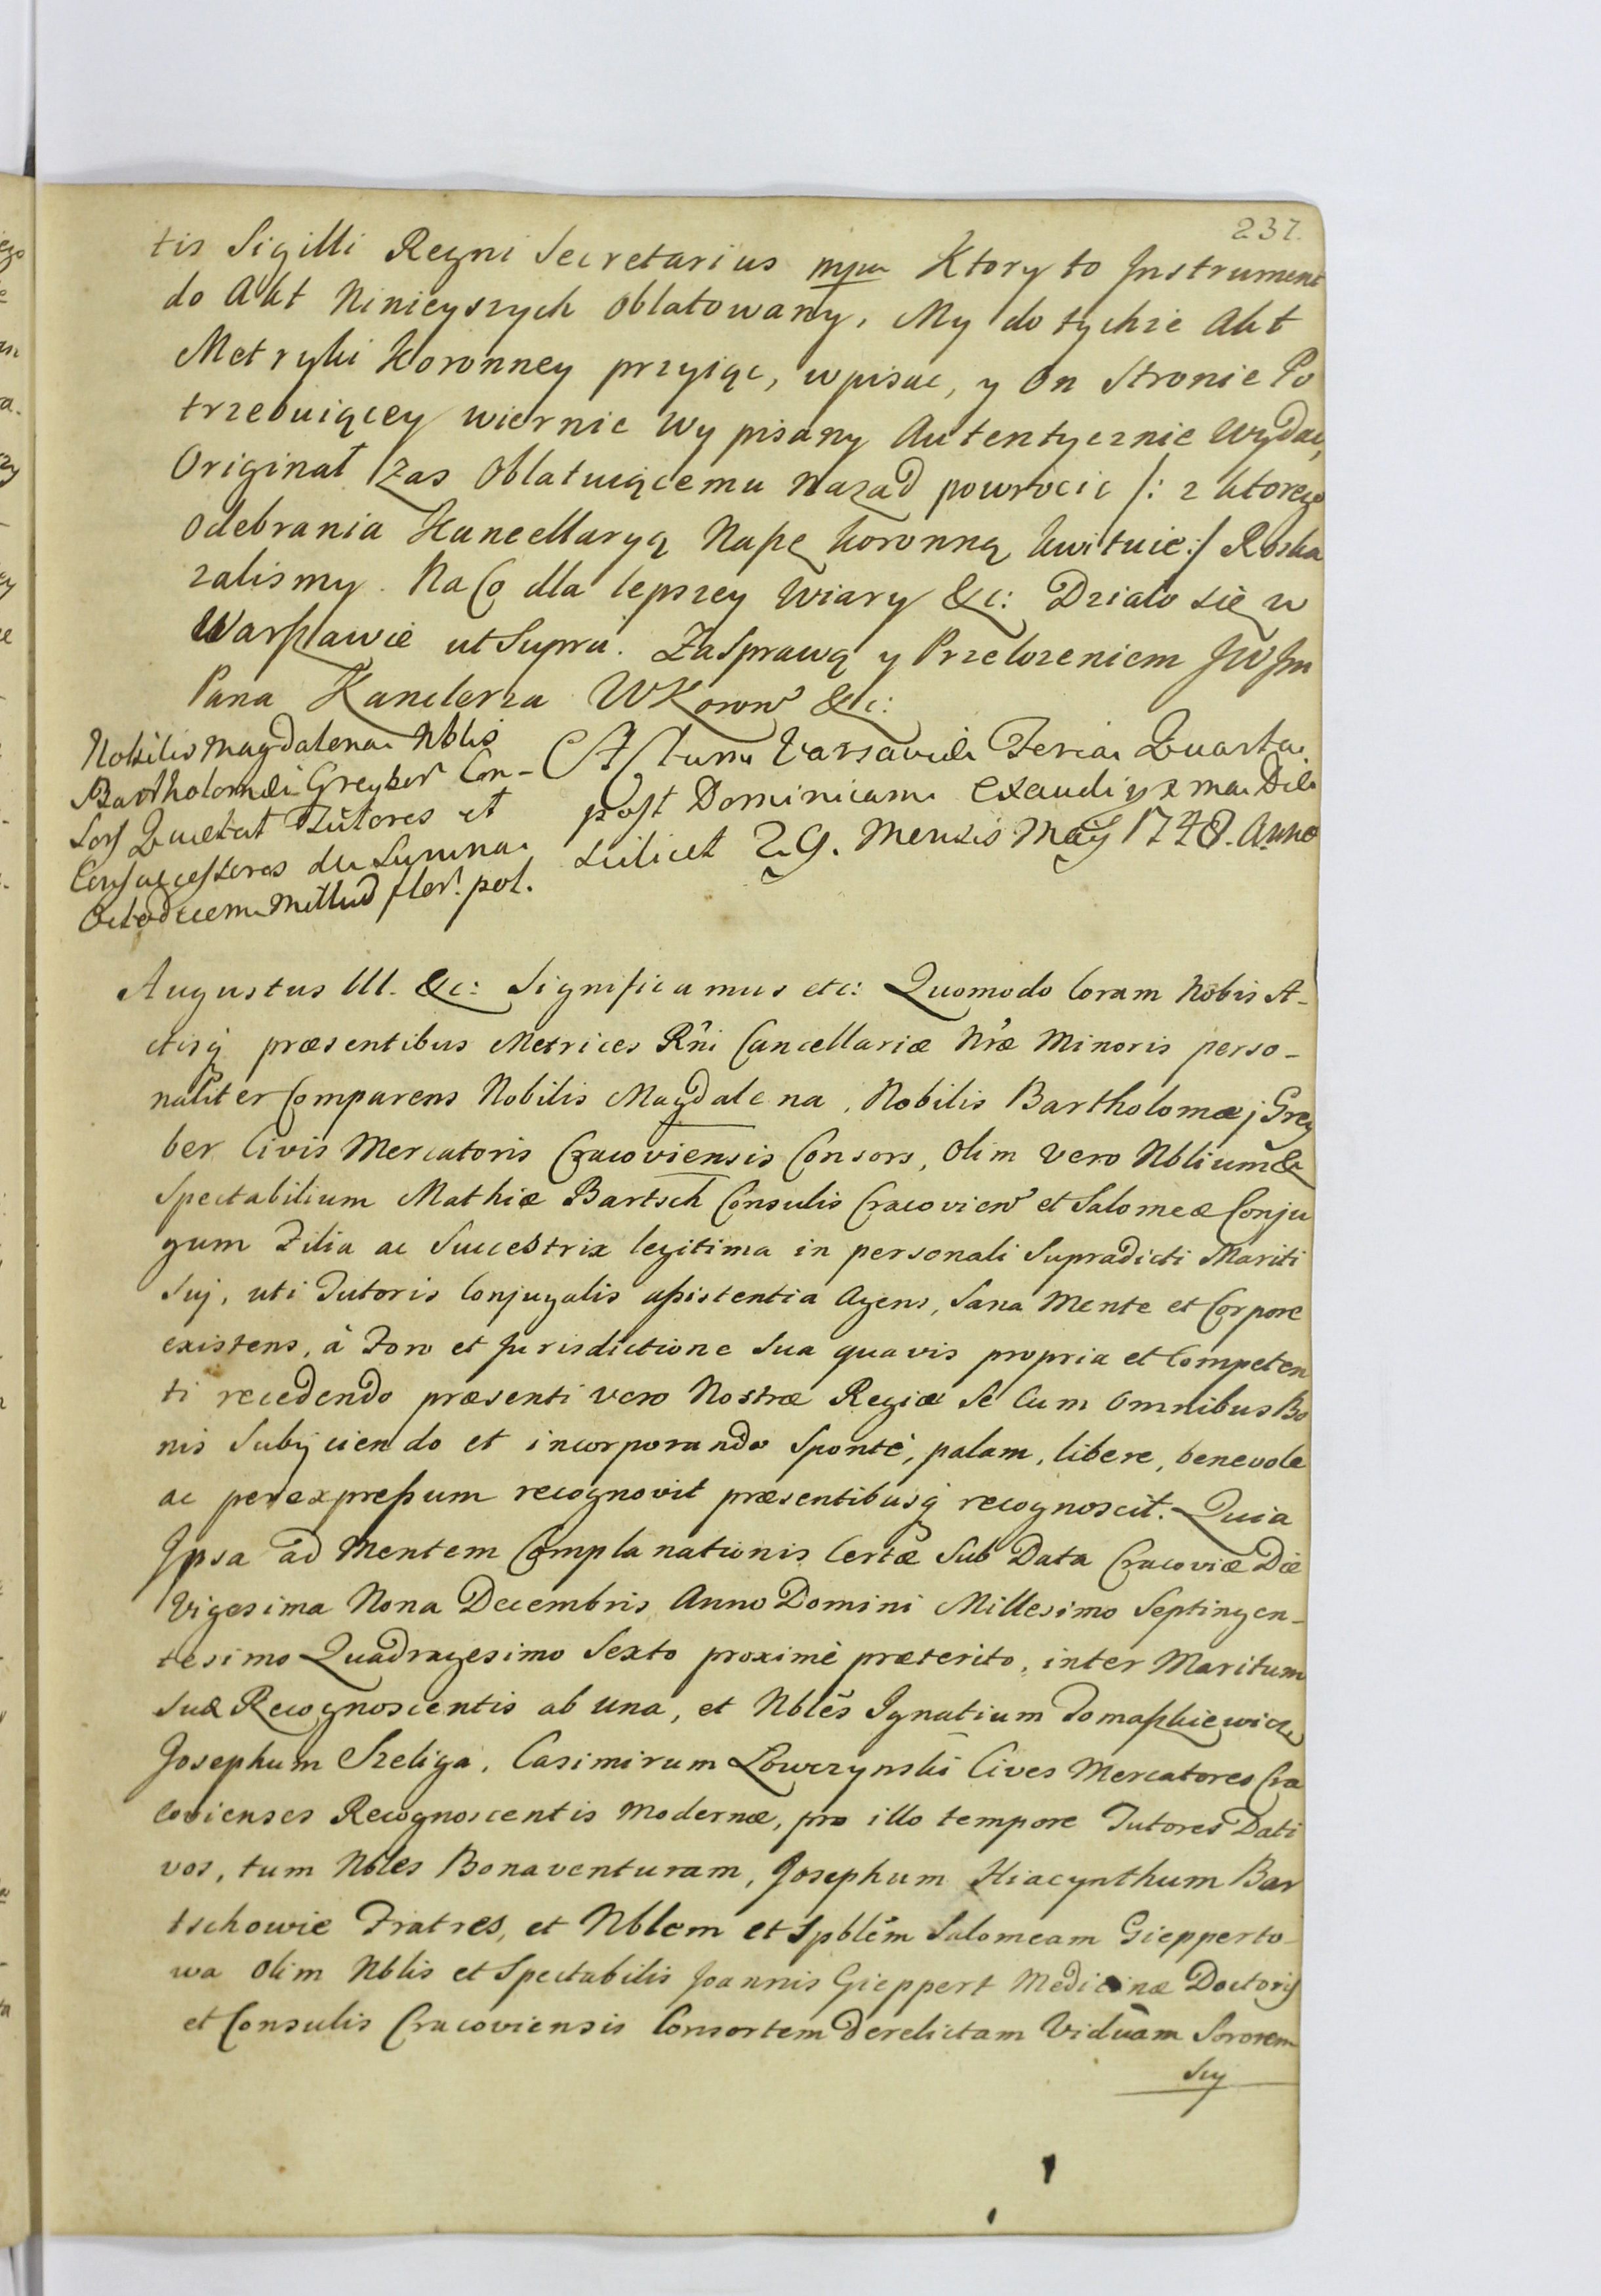 237.
tis Sigilli Regni Secretarius mpa Ktory to Instrument
do Akt Ninieyszych oblatowany, My do tychże Akt
Metryki Koronney przyiąc, wpisac, y On Stronie Po
trzebuiącey wiernie Wypisany Autentycznie Wydac,
Originał zas Oblatuiącemu nazad powrocic /: z ktorego
odebrania Kancellaryą Naszę koronną kwituie :/ Roska
zalismy. Na Co dla lepszey Wiary &c: Działo się w
Warszawie ut Supra. Za Sprawą y Przełozeniem JW Jm
Pana Kanclerza WKoron &c:
Nobilis Magdalena Nblis
Bartholomæi Greyber Con-
sors Quietat Tutores et
Consuccessores de Summa
Octodecem Millium flor. pol.
Actum Varsaviæ Feria Quarta
post Dominicam Exaudi yxma Die
scilicet 29. Mensis Maij 1748. Anno
Augustus III. &c: Significamus etc: Quomodo Coram Nobis A-
ctisq præsentibus Metrices Rni Cancellariæ Nræ Minoris perso-
naliter Comparens Nobilis Magdalena, Nobilis Bartholomæj Grey
ber Civis Mercatoris Cracoviensis Consors, Olim Vero Nblium &
Spectabilium Mathiæ Bartsch Consulis Cracovien et Salomeæ Conju
gum Filia ac Successtrix legitima in personali Supradicti Mariti
Suj, uti Tutoris Conjugalis assistentia Agens, Sana Mente et Corpore
existens, à Foro et Jurisdictione Sua quavis propria et Competen
ti recedendo præsenti vero Nostræ Regiæ Se Cum Omnibus Bo
nis Subijciendo et incorporando Spontè, palam, libere, benevole
ac per expressum recognovit præsentibusq recognoscit. Quia
Ipsa ad Mentem Complanationis Certæ Sub Data Cracoviæ Die
Vigesima Nona Decembris Anno Domini Millesimo Septingen-
tesimo Quadragesimo Sexto proximè præterito, inter Maritum
Suæ Recognoscentis ab una, et Nbles Ignatium Tomaszkiewicz
Josephum Szeliga, Casimirum Łowczynski Cives Mercatores Cra
covienses Recognoscentis Modernæ, pro illo tempore Tutores Dati
vos, tum Nbles Bonaventuram, Josephum Hiacynthum Bar
tschowie Fratres, et Nblem et Spblem Salomeam Giepperto-
wa Olim Nblis et Spectabilis Joannis Gieppert Medicinæ Doctoris
et Consulis Cracoviensis Consortem Derelictam Viduam Sororem
Suj